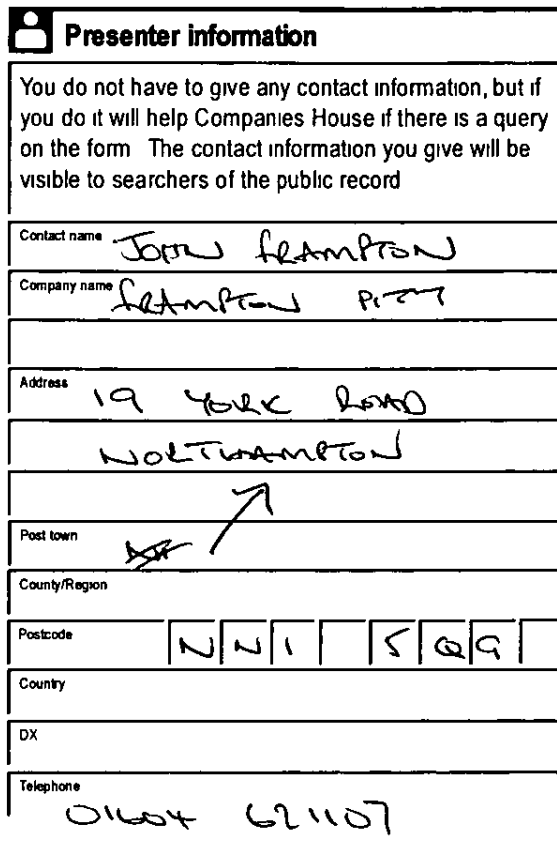 Presenter information
You do not have to give any contact information, but if
you do it will help Companies House if there is a query
on the form The contact information you give will be
visible to searchers of the public record
Contact name JOHN FRAMPTON
Company name FRAMPTON PITT
Address 19 YORK ROAD
NORTHAMPTON
Post town
County/Region
Postcode NN1 5QG
Country
DX
Telephone 01604 621107